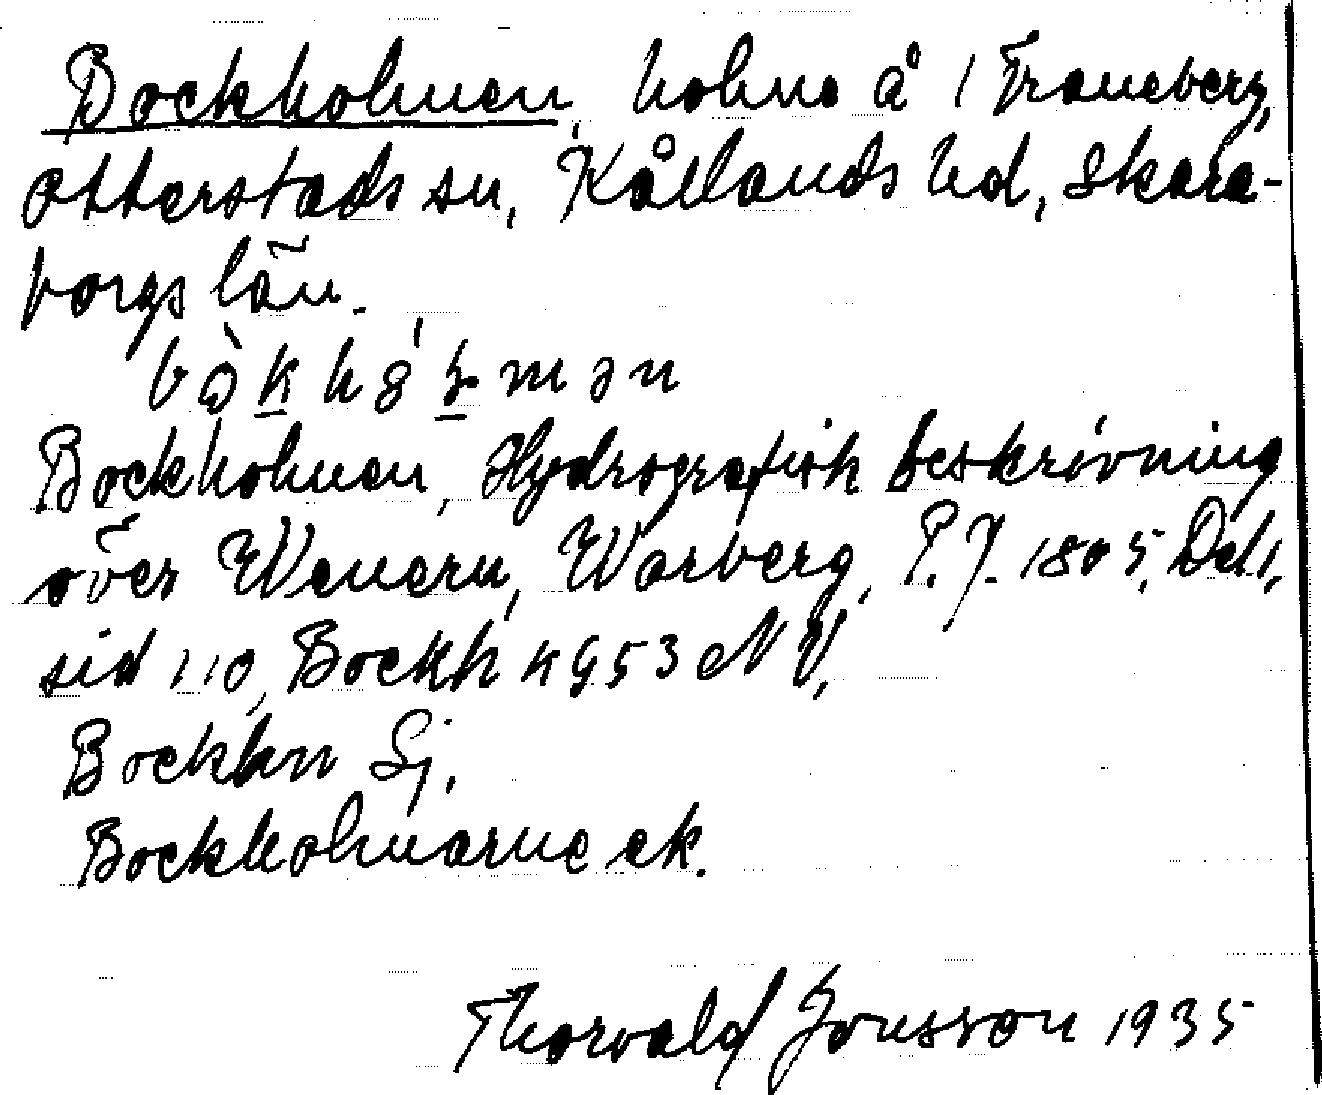 Bockholmen, holme å i Traneberg,
Otterstads sn, Kållands hd, Skara-
borgs län.
Bockholmen, Hydrografisk beskrivning
över Wenern, Warberg, P. J. 1805, Del 1,
sid 110, Bockh k G53 NV,
Bockhn Sj.
Bockholmarne ek.
Thorvald Jonsson 1935